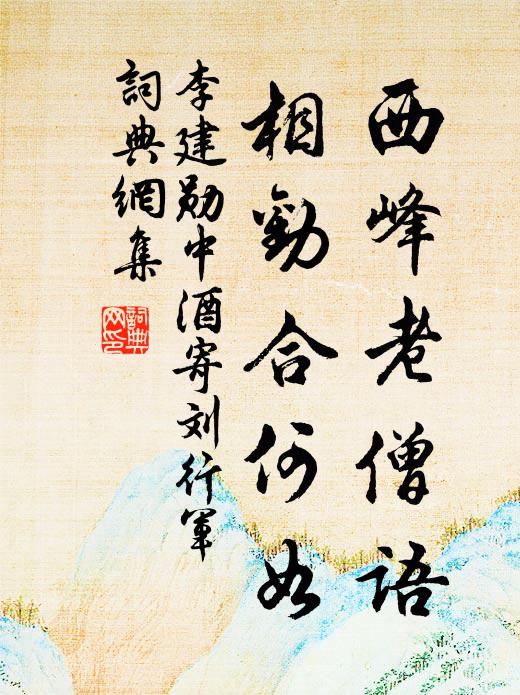 西峰老僧語
相勸合何如
李建勋中酒寄刘行軍
詞典網集
詞典
网印